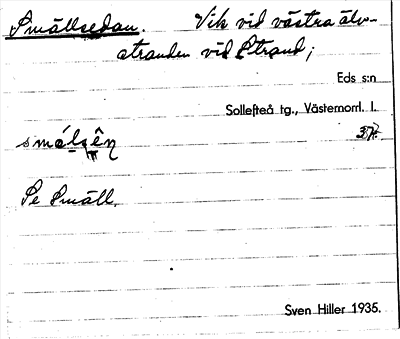 Smällsedan. Vik vid västra älv-
stranden vid Strand;
Eds s:n
Sollefteå tg., Västernorrl. l.
Se Smäll.
Sven Hiller 1935.